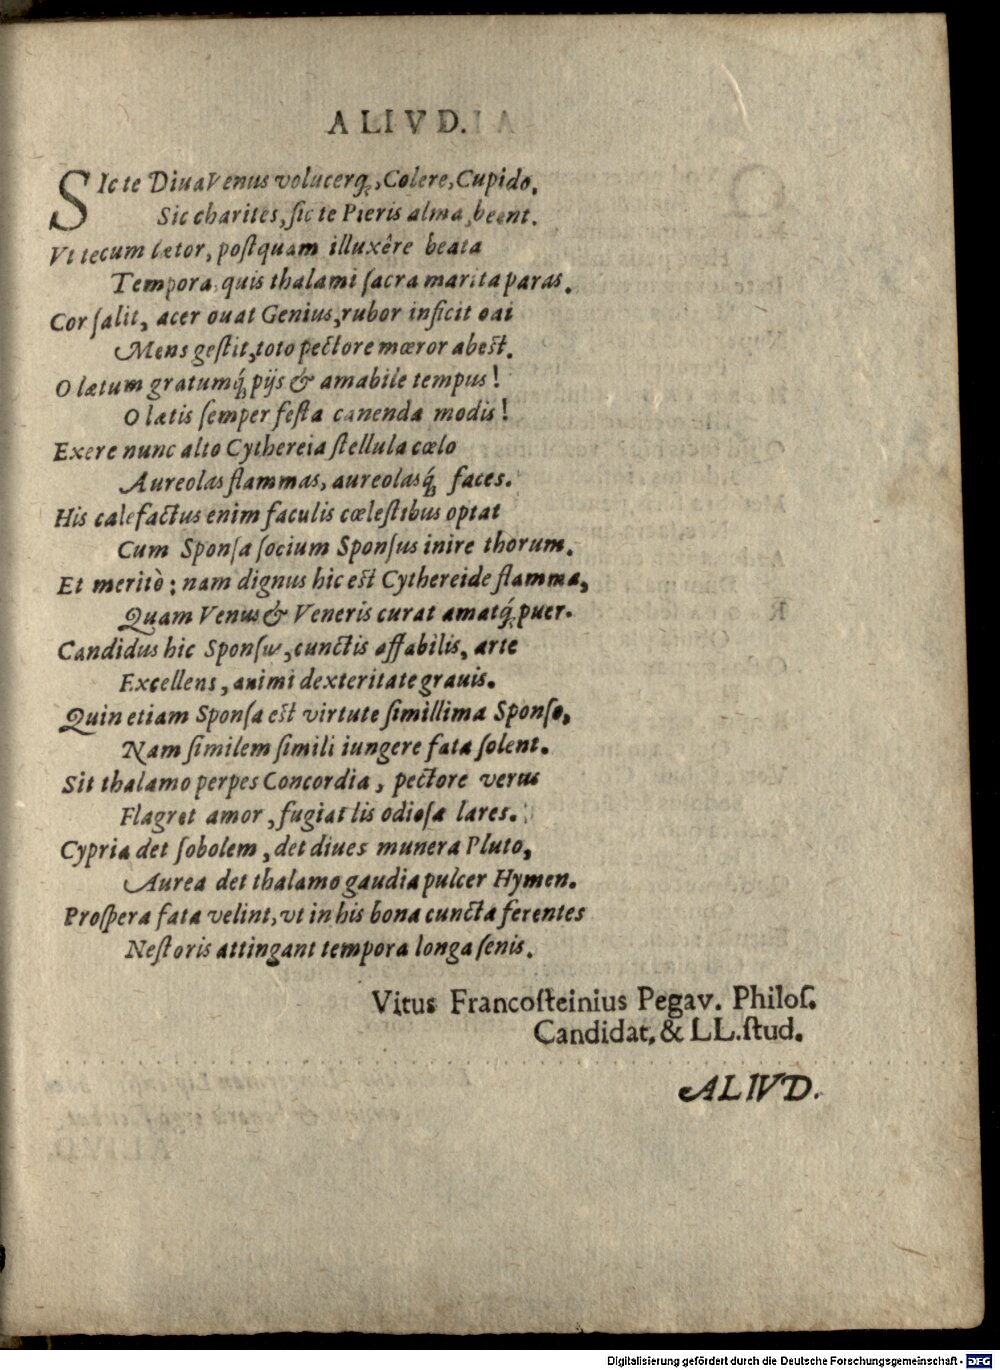 ALIVD.
SIc te Diua Venus volucerq́;, Colere, Cupido,
Sic charites, ſic te Pieris alma beent.
Vt tecum lætor, poſtquam illuxêre beata
Tempora quis thalami ſacra marita paras.
Cor ſalit, acer ouat Genius, rubor inficit oai
Mens geſtit, toto pectore mœror abest.
O lætum gratumq́; pijs & amabile tempus!
O lætis ſemper feſta canenda modis!
Exere nunc alto Cythereia ſtellula cœlo
Aureolas flammas, aureolasq́; faces.
His calefactus enim faculis cœleſtibus optat
Cum Sponſa ſocium Sponſus inire thorum.
Et meritò: nam dignus hic est Cythereide flamma,
Quam Venus & Veneris curat amatq́; puer.
Candidus hic Sponſus, cunctis affabilis, arte
Excellens, animi dexteritate grauis.
Quin etiam Sponſa est virtute ſimillima Sponſo,
Nam ſimilem ſimili iungere fata ſolent.
Sit thalamo perpes Concordia, pectore verus
Flagret amor, fugiat lis odioſa lares.
Cypria det ſobolem, det diues munera Pluto,
Aurea det thalamo gaudia pulcer Hymen.
Proſpera fata velint, vt in his bona cuncta ferentes
Neſtoris attingant tempora longa ſenis.
Vitus Francoſteinius Pegav. Philoſ.
Candidat, & LL. ſtud.
ALIVD.
Digitalisierung gefördert durch die Deutsche Forschungsgemeinschaft - DFG